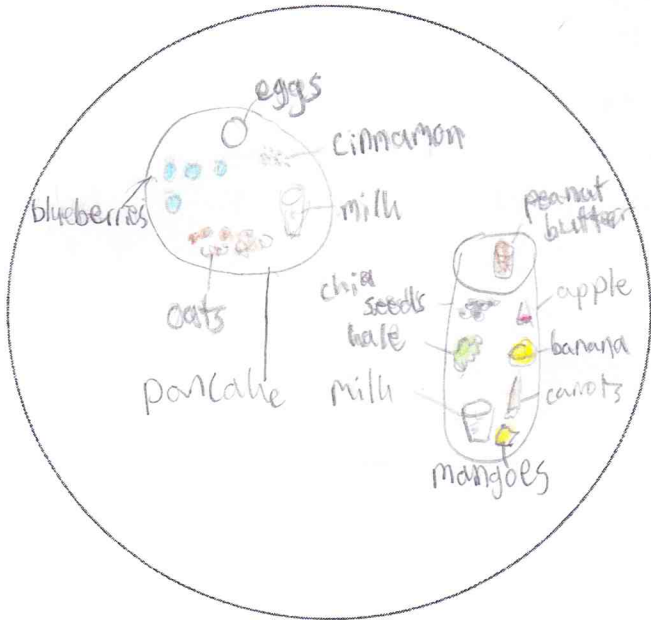 eggs
cinnamon
blueberries
milk
oats
pancake
peanut
butter
chia
seeds
apple
kale
banana
milk
carrots
mangoes